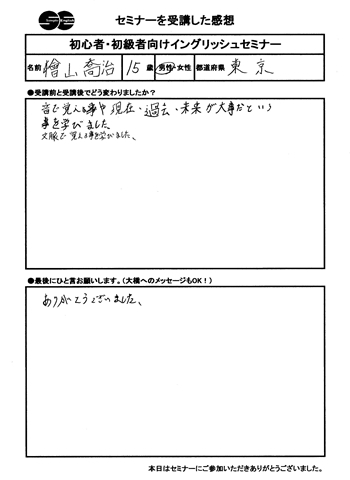 セミナーを受講した感想
初心者・初級者向けイングリッシュセミナー
名前 檜山喬治 15歳 男性・女性 都道府県 東京
●受講前と受講後でどう変わりましたか?
音で覚える事や現在、過去、未来が大事だという
事を学びました
文脈で覚える事を学びました、
●最後にひと言お願いします。(大橋へのメッセージもOK!)
ありがとうございました、
本日はセミナーにご参加いただきありがとうございました。